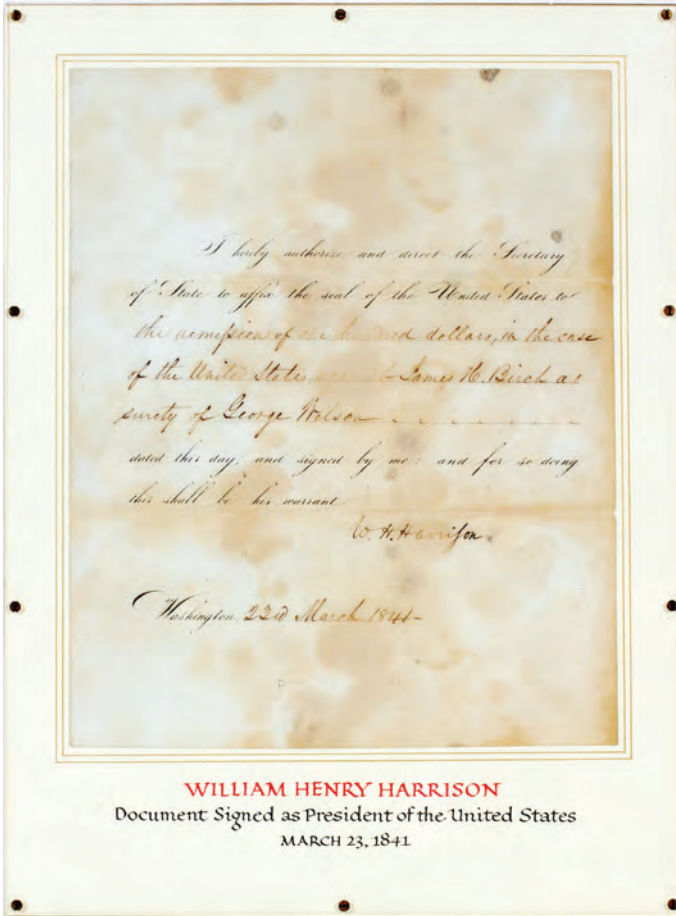 I hereby authorize and direct the Secretary
of State to affix the seal of the United States to
the remission of one hundred dollars, in the case
of the United States James H. Birch as
surety of George Wilson
dated this day, and signed by me: and for so doing
this shall be his warrant.
W. H. Harrison.
Washington, 23d March 1841-
WILLIAM HENRY HARRISON
Document Signed as President of the United States
MARCH 23, 1841